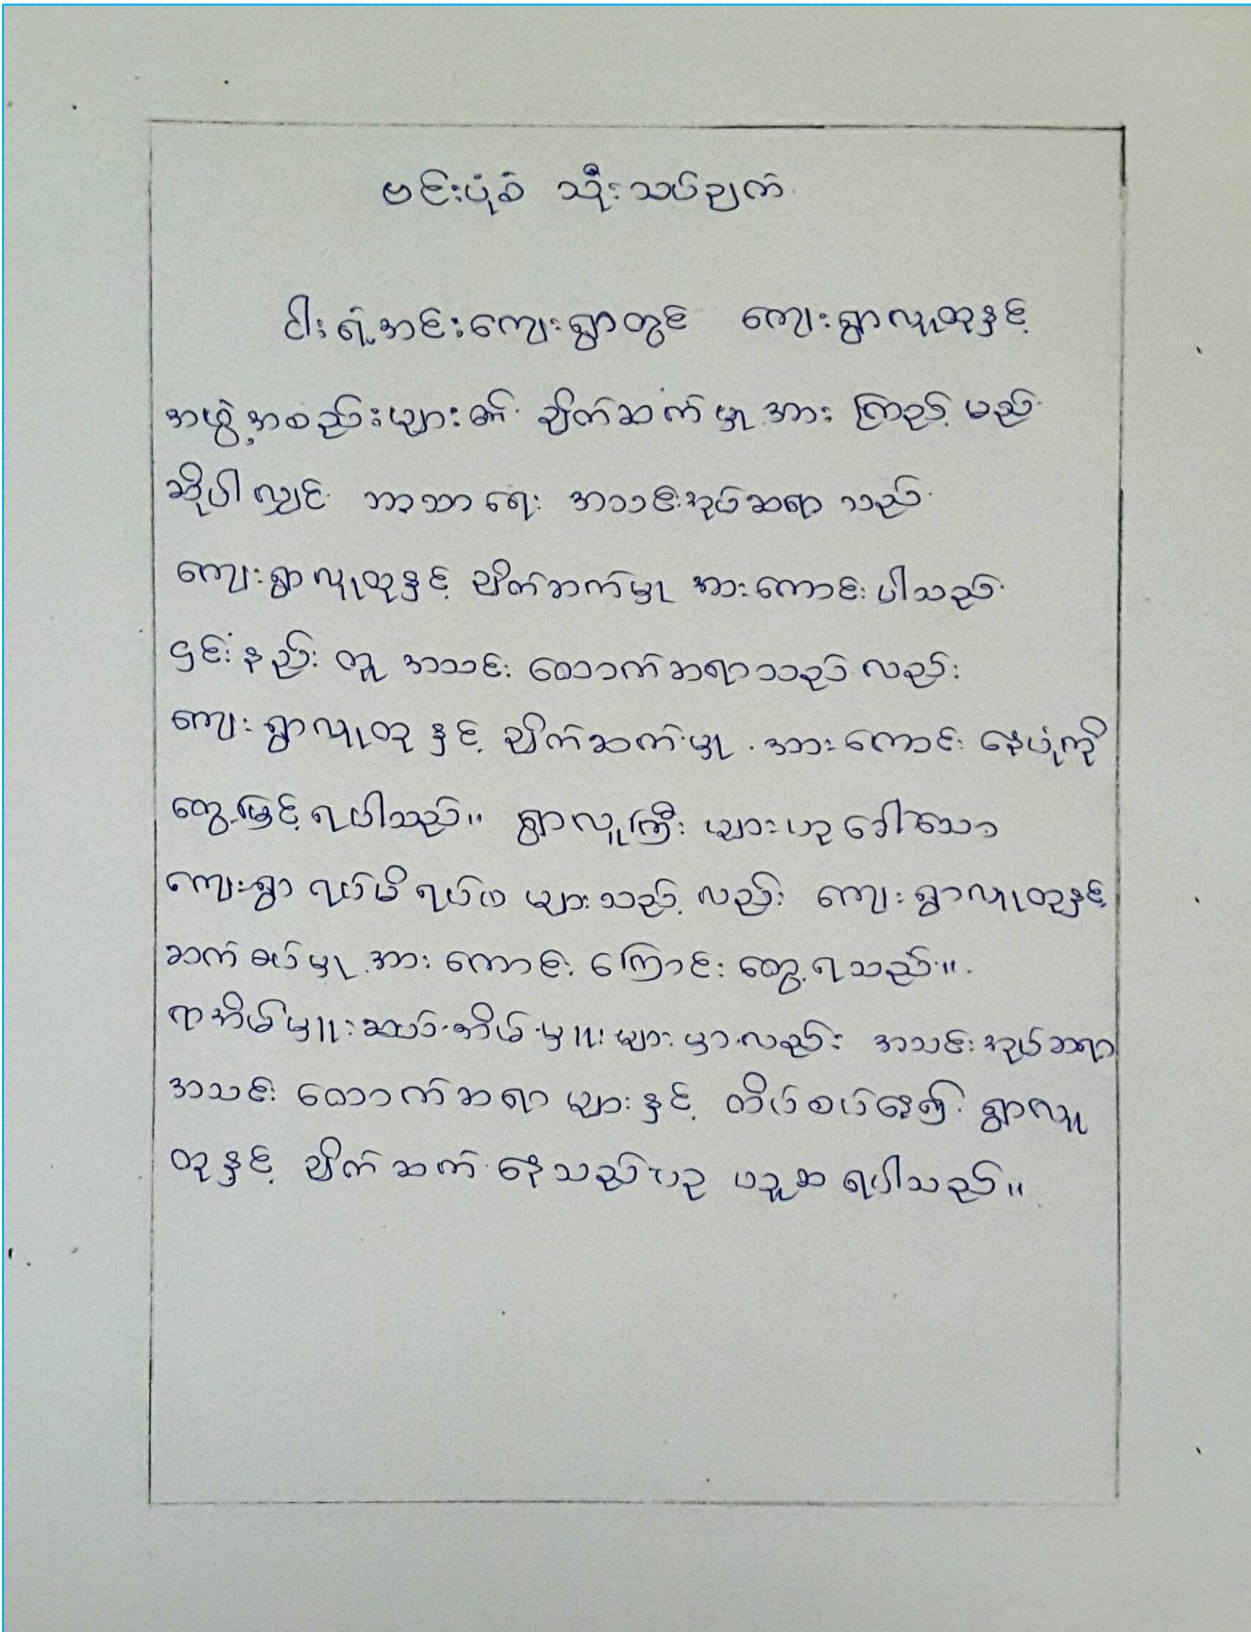 ဗင်းပုံစံ သုံးသပ်ချက်
ငါးရံ့အင်းကျေးရွာတွင် ကျေးရွာလူထုနှင့်
အဖွဲ့အစည်းများ၏ ချိတ်ဆက်မှုအား ကြည့်မည်
ဆိုပါလျှင် ဘာသာရေး အသင်းအုပ်ဆရာသည်
ကျေးရွာလူထုနှင့် ချိတ်ဆက်မှု အားကောင်းပါသည်
၎င်းနည်းတူ အသင်းထောက်ဆရာသည်လည်း
ကျေးရွာလူထုနှင့် ချိတ်ဆက်မှု အားကောင်းနေပုံကို
တွေ့မြင်ရပါသည်။ ရွာလူကြီးများဟုခေါ်သော
ကျေးရွာ ရပ်မိရပ်ဖများသည်လည်း ကျေးရွာလူထုနှင့်
ဆက်စပ်မှုအား ကောင်းကြောင်း တွေ့ရသည်။
ရာအိမ်မှူးဆယ်အိမ်မှူးများမှာလည်း အသင်းအုပ်ဆရာ
အသင်းထောက်ဆရာများနှင့် တိုပ်စပ်နေ၍ ရွာလူ
ထုနှင့် ချိတ်ဆက်နေသည်ဟု ယူဆရပါသည်။